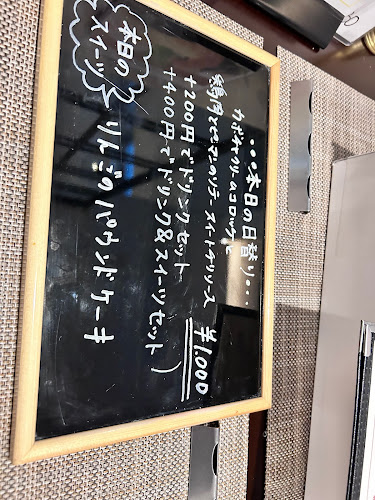 ・・・本日の日替り・・・
カボチャクリームコロッケと
鶏肉とピーマンのソテー スイートチリソース
¥1.000
+200円でドリンクセット
+400円でドリンク&スイーツセット)
本日の
スイーツ
りんごのパウンドケーキ